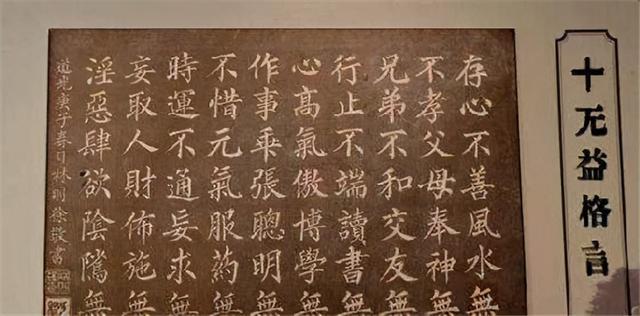 十无益格言
存心不善風水無
不孝父母奉神無
兄弟不和交友無
行止不端讀書無
心高氣傲博學無
作事乖張聰明無
不惜元氣服藥無
時運不通妄求無
妄取人財佈施無
淫惡肆欲陰騭無
道光庚子春日林則徐敬書